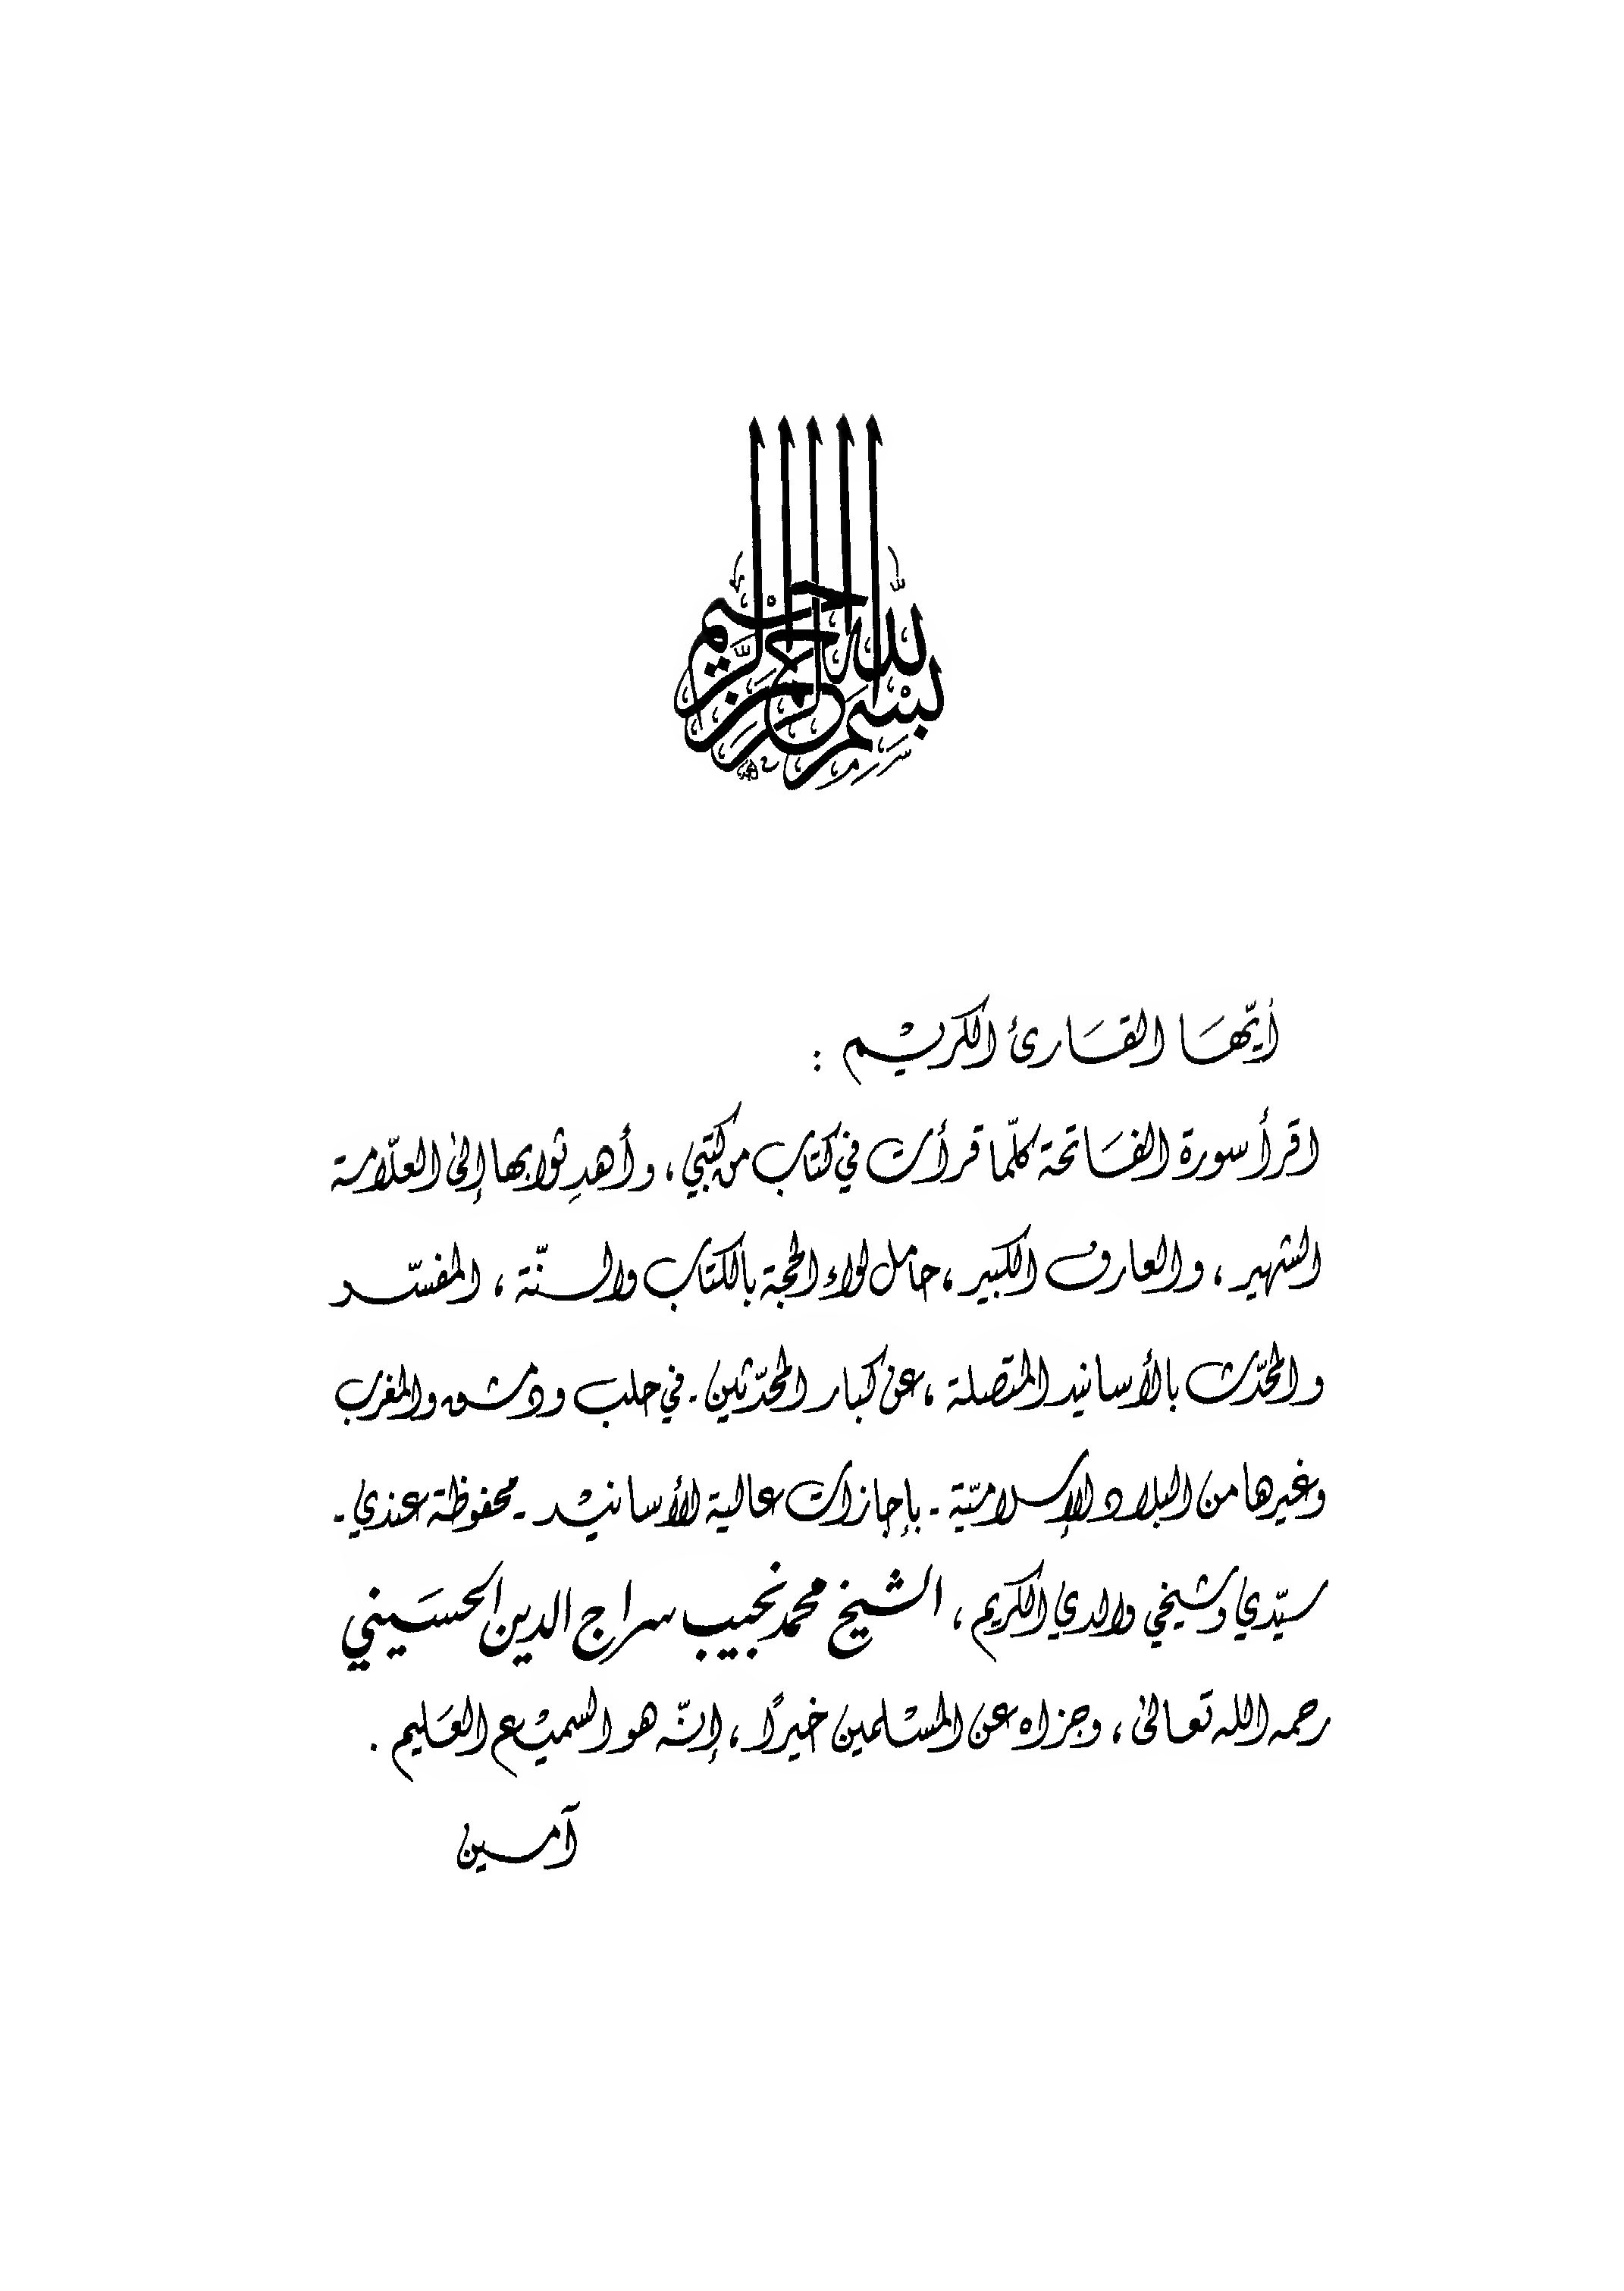 بسم الله الرحمن الرحيم
أيّها القارئ الكريم :
اقرأ سورة الفاتحة كلّما قرأت في كتاب من كتبي ، وأهدِ ثوابها إلى العلّامة
الشهير ، والعارف الكبير ، حامل لواء الحجة بالكتاب والسنّة ، المفسّر
والمحدّث بالأسانيد المتصلة ، عن كبار المحدّثين - في حلب ودمشق والمغرب
وغيرها من البلاد الإسلاميّة - بإجازات عالية الأسانيد - محفوظة عندي -
سيّدي وشيخي والدي الكريم ، الشيخ محمد نجيب سراج الدين الحسيني
رحمه الله تعالى ، وجزاه عن المسلمين خيرًا ، إنّه هو السميع العليم .
آمين